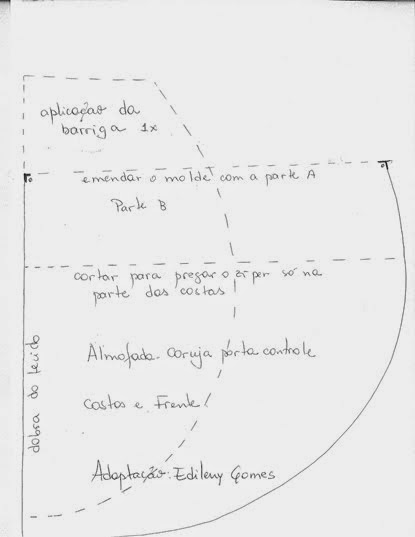 aplicação da
barriga 1x
emendar o molde com a parte A
Parte B
cortar para pregar o zíper só na
parte das costas
Almofada coruja porta controle
costas e Frente
Adaptação: Edileny Gomes
dobra do tecido